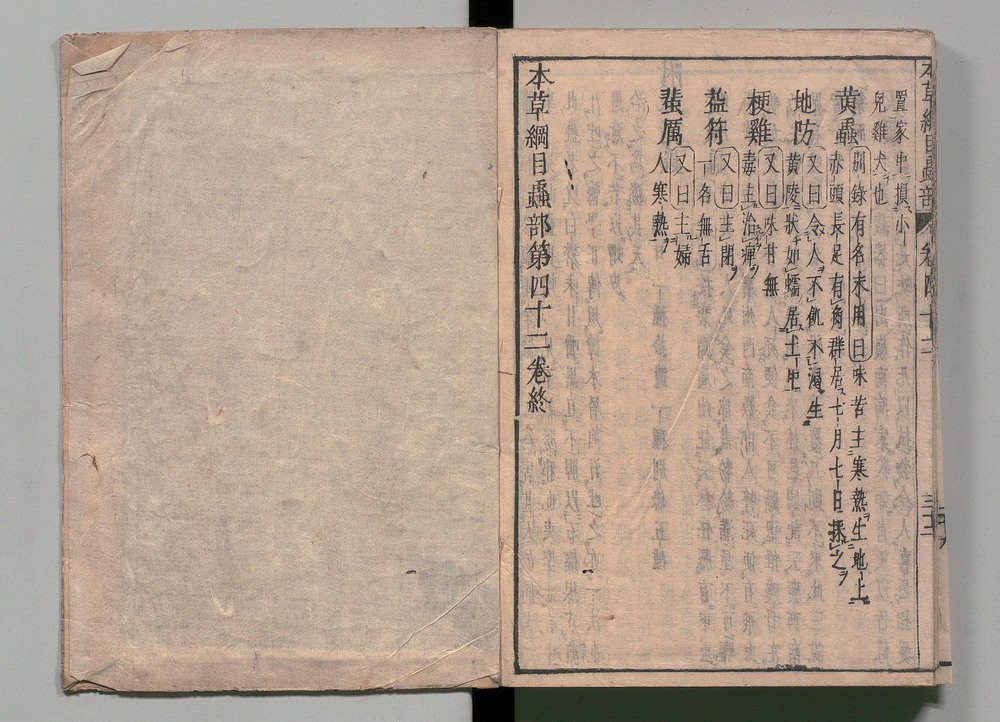 置家中損小
兒雞犬也
黄蟲 別録有名未用曰味苦主寒熱生地上
赤頭長足有角群居七月七日採之
地防 又曰令人不飢不渴生
黄陵狀如蠕居土中
梗雞 又曰味甘無
毒主治痺
益符 又曰主閉
一名無舌
蜚厲 又曰主婦
人寒熱
本草綱目蟲部第四十二卷終
本草綱目蟲部 卷四十二 三十三